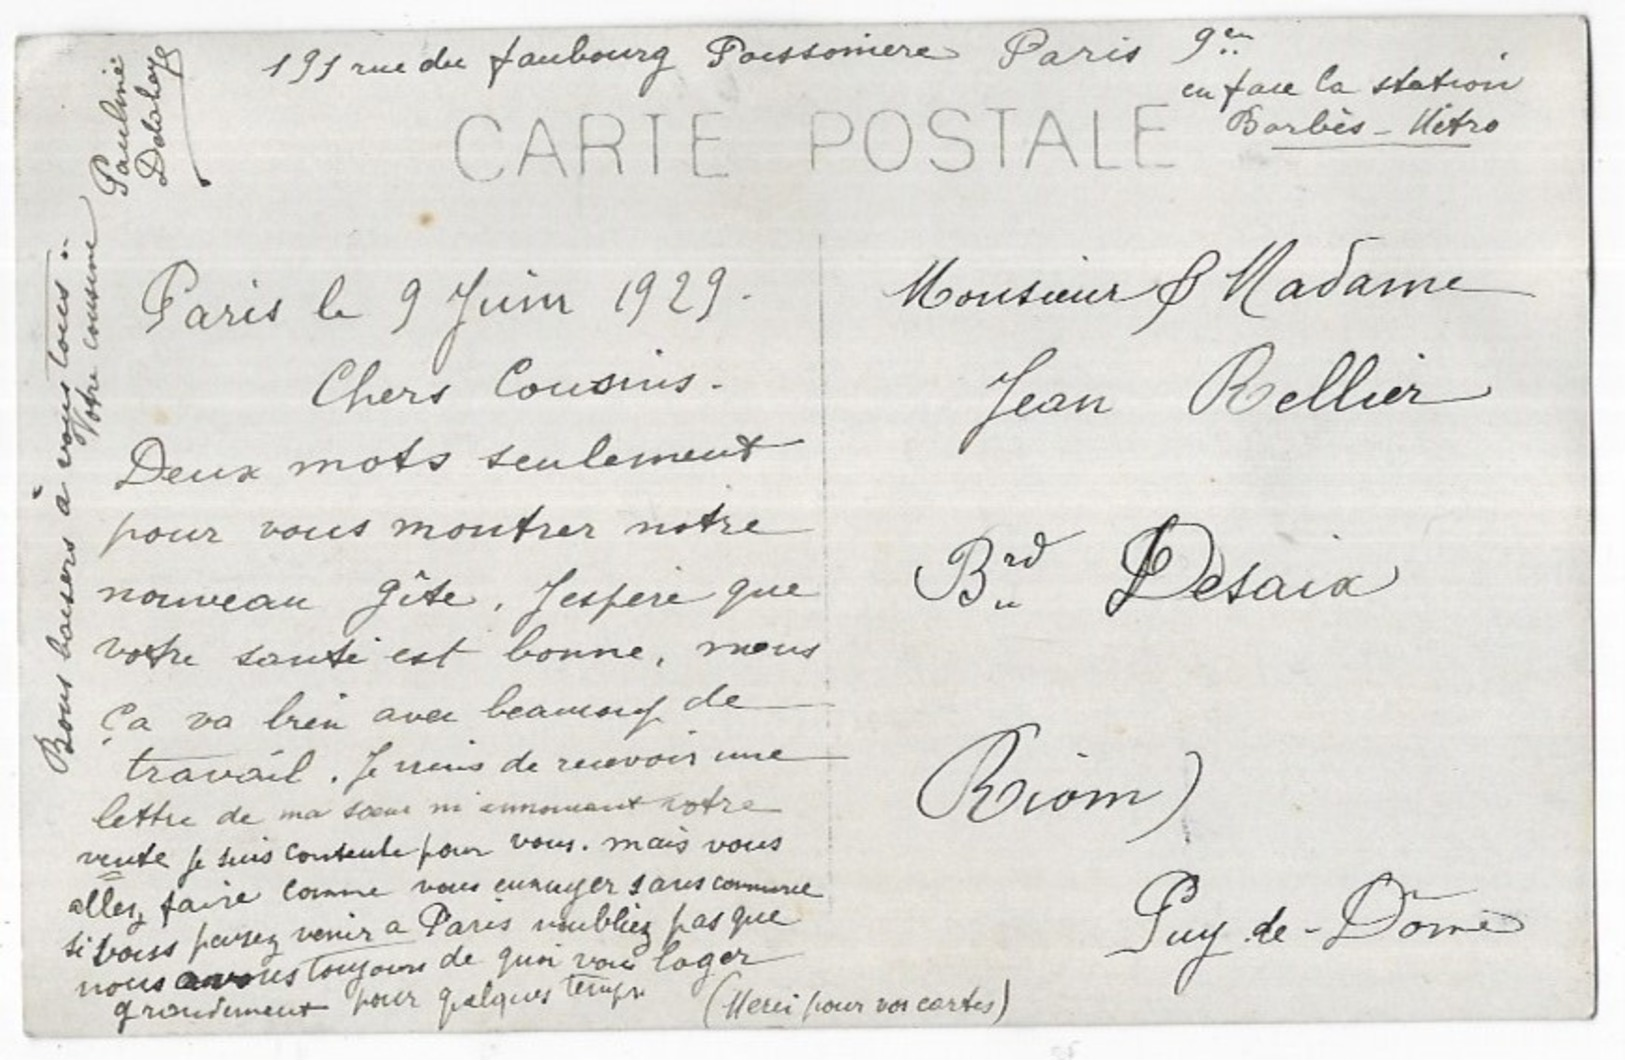 191 rue du faubourg Poissonière Paris 9em
en face la station
Barbès - Métro
CARTE POSTALE
Paris le 9 Juin 1929.
Chers Cousins.
Deux mots seulement
pour vous montrer notre
nouveau gîte, J'espère que
votre santé est bonne, nous
ça va bien avec beaucoup de
travail. Je viens de recevoir une
lettre de ma sœur m'annonçant votre
vente je suis contente pour vous. mais vous
allez faire comme vous ennuyer sans commerce
si vous pensez venir a Paris n'oubliez pas que
nous avons toujours de quoi vous loger
grandement pour quelques temps
(Merci pour vos cartes)
Bons baisers à vous tous
Votre cousine
Pauline
Monsieur & Madame
Jean Rellier
Brd Desaix
Riom)
Puy-de-Dôme